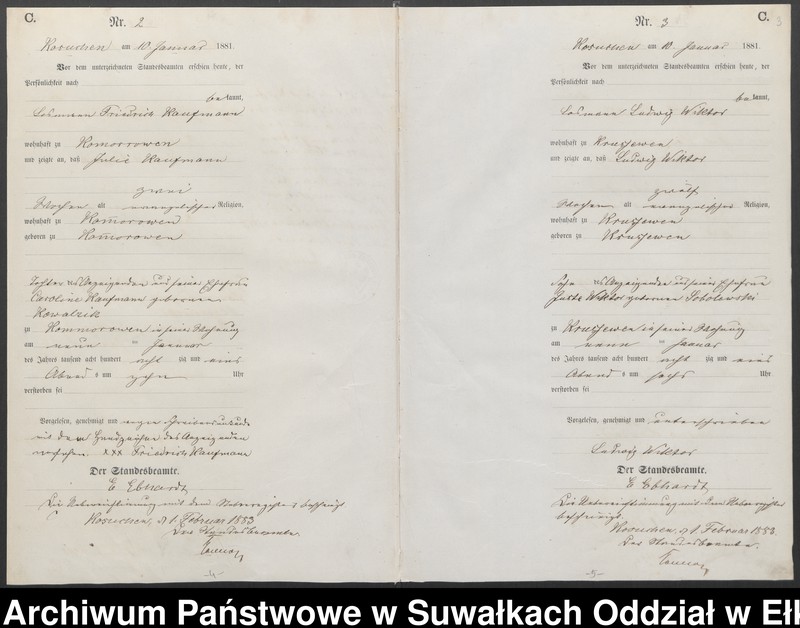 C.
Nr. 2
Kosuchen am 10. Januar 1881.
Vor dem unterzeichneten Standesbeamten erschien heute, der
Persönlichkeit nach
bekannt,
Losmann Friedrich Kaufmann
wohnhaft zu Komorrowen
und zeigte an, daß Julie Kaufmann
zwei
Wochen alt evangelischer Religion,
wohnhaft zu Komorowen
geboren zu Komorowen
Tochter des Anzeigenden und seiner Ehefrau
Caroline Kaufmann geborenen
Kowalzik
zu Kommorowen in seiner Wohnung
am neun ten Januar
des Jahres tausend acht hundert acht zig und eins
Abends um zehn Uhr
verstorben sei
Vorgelesen, genehmigt und wegen Schreibensunkunde
mit dem Handzeichen des Anzeigenden
versehen. xxx Friedrich Kaufmann
Der Standesbeamte.
E Ebhardt
Die Uebereinstimmung mit dem Nebenregister bescheinigt
Kosuchen, d 1. Februar 1883
Der Standesbeamte.
-4-
C.
Nr. 3
Kosuchen am 10. Januar 1881.
Vor dem unterzeichneten Standesbeamten erschien heute, der
Persönlichkeit nach
bekannt,
Losmann Ludwig Wiktor
wohnhaft zu Kruszewen
und zeigte an, daß Ludwig Wiktor
zwölf
Wochen alt evangelischer Religion,
wohnhaft zu Kruszewen
geboren zu Kruszewen
Sohn des Anzeigenden und seiner Ehefrau
Juste Wiktor geborenen Sobolewski
zu Kruszewen in seiner Wohnung
am neun ten Januar
des Jahres tausend acht hundert acht zig und eins
Abends um sechs Uhr
verstorben sei
Vorgelesen, genehmigt und unterschrieben
Ludwig Wiktor
Der Standesbeamte.
E Ebhardt
Die Uebereinstimmung mit dem Nebenregister
bescheinigt.
Kosuchen, d 1 Februar 1883.
Der Standesbeamte.
-5-
Archiwum Państwowe w Suwałkach Oddział w Ełk